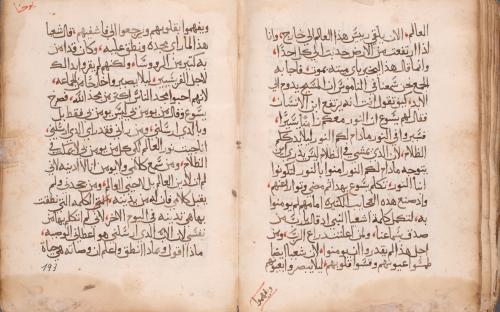 العالم، الان يلقى رييس هذا العالم الى خارج، وانا
اذا ارتفعت من الارض جذبت الي كل احد،
وانما قال هذا ليخبر باي ميتة يموت، فاجابه
الجمع نحن سمعنا في الناموس ان المسيح يدوم الى
الابد، كيف تقول انت انه يرتفع ابن الانسان،
فقال لهم يسوع ان النور معكم زمانا يسيرا،
فسيروا في النور ما دام لكم النور ليلا يدرككم
الظلام، لان الذي يمشي في الظلام ليس يدري اين
يتوجه ما دام لكم النور امنوا بالنور لتكونوا
ابنا النور، تكلم يسوع بهذا ثم مضى وتوارى عنهم،
واذ صنع هذه العجايب كلها امامهم لم يومنوا
به، لتكمل كلمة اشعيا النبي اذ قال يارب من
صدق سماعنا، ولمن اعلنت ذراع الرب، ومن
اجل هذا لم يقدروا ان يومنوا، لان اشعيا ايضا
طمسوا عيونهم وقسوا قلوبهم، ليلا يبصروا باعينهم
ويفهموا
يوحنا
ويفهموا بقلوبهم ويرجعوا الي فاشفيهم، قال اشعيا
هذا لما راى مجده ونطق عليه، وكان قد امن
به كثير من الروسا، ولكنهم لم يقروا بذلك
لاجل الفريسيين، ليلا يصيروا خارجا من الجماعه،
لانهم احبوا مجد الناس اكثر من مجد الله، فصرخ
يسوع وقال من يومن بي ليس يومن بي فقط بل
وبالذي ارسلني، ومن راني فقد راى الذي ارسلني،
انا جيت نور العالم لكي كل من يومن بي لا يمكث في
الظلام، ومن سمع كلامي ولا يومن انا لا ادينه لاني
لم ات لادين العالم بل لاحيي العالم، ومن جحدني ولم
يقبل كلامي فان له من يدينه، الكلمه التي نطقت
بها هي تدينه في اليوم الاخر، لاني لم اتكلم بها من
نفسي لان الاب الذي ارسلني هو اعطاني الوصيه،
ماذا اقول وبماذا انطق واعلم ان وصاته هي حياة
193